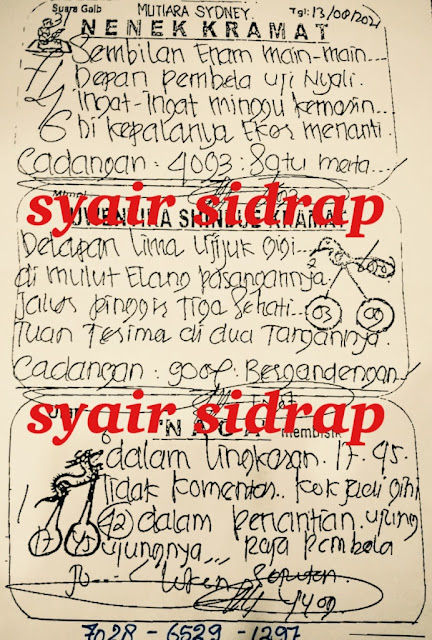 Suara Gaib MUTIARA SYDNEY. Tgl: 13/08/2021
NENEK KRAMAT
Sembilan Enam main-main...
Depan pembela uji Nyali.
Ingat-Ingat minggu kemarin...
Di kepalanya Ekor menanti.
Cadangan: 4093: Satu mata...
syair sidrap
KRAMAT
Delapan Lima Unjuk gigi...
di mulut Elang pasangannya.
Jalur pinggir Tiga Sehati...
Tuan Terima di dua Tangannya.
03 09
Cadangan: Bergandengan
syair sidrap
"NAGA" membisik
dalam lingkaran. 17. 45.
Tidak komentar.. kok jadi gini
42 dalam penantian ujung
17 45
ujungnya... para pembela
4400
7028 - 6529 - 1297